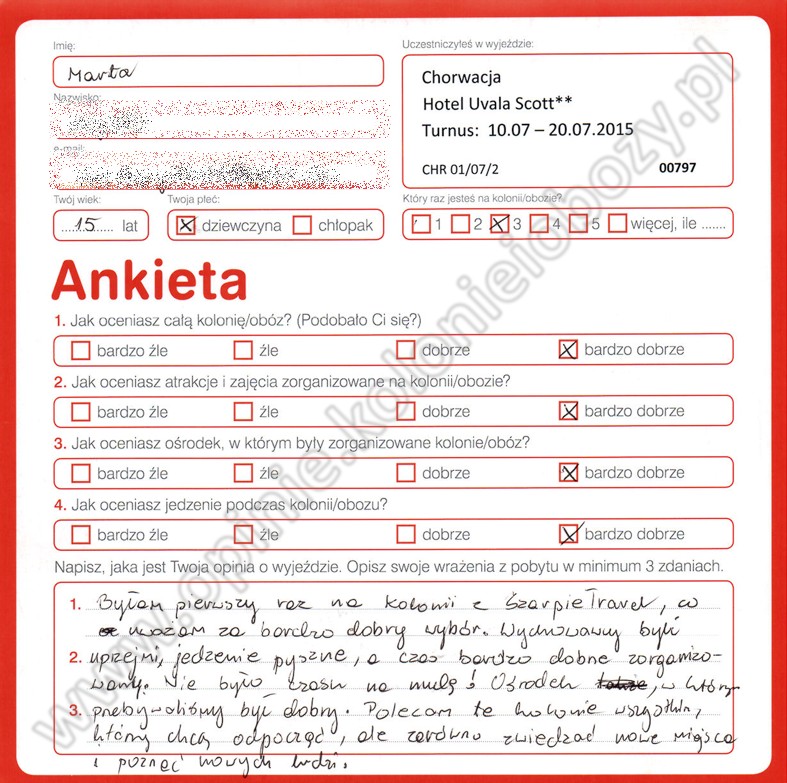 Imię:
Marta
Nazwisko:
e-mail:
Uczestniczyłeś w wyjeździe:
Chorwacja
Hotel Uvala Scott**
Turnus: 10.07 – 20.07.2015
CHR 01/07/2 00797
Twój wiek:
15 lat
Twoja płeć:
dziewczyna chłopak
Który raz jesteś na kolonii/obozie?
1 2 3 4 5 więcej, ile .......
Ankieta
1. Jak oceniasz całą kolonię/obóz? (Podobało Ci się?)
bardzo źle źle dobrze bardzo dobrze
2. Jak oceniasz atrakcje i zajęcia zorganizowane na kolonii/obozie?
bardzo źle źle dobrze bardzo dobrze
3. Jak oceniasz ośrodek, w którym były zorganizowane kolonie/obóz?
bardzo źle źle dobrze bardzo dobrze
4. Jak oceniasz jedzenie podczas kolonii/obozu?
bardzo źle źle dobrze bardzo dobrze
Napisz, jaka jest Twoja opinia o wyjeździe. Opisz swoje wrażenia z pobytu w minimum 3 zdaniach.
1. Byłam pierwszy raz na kolonii z SzarpieTravel, co
uważam za bardzo dobry wybór. Wychowawcy byli
2. uprzejmi, jedzenie pyszne, a czas bardzo dobrze zorganizo-
wany. Nie było czasu na nudę! Ośrodek, w którym
3. przebywaliśmy był dobry. Polecam te kolonie wszystkim,
którzy chcą odpocząć, ale zarówno zwiedzać nowe miejsca
i poznać nowych ludzi.
www.opinie.kolonieiobozy.pl